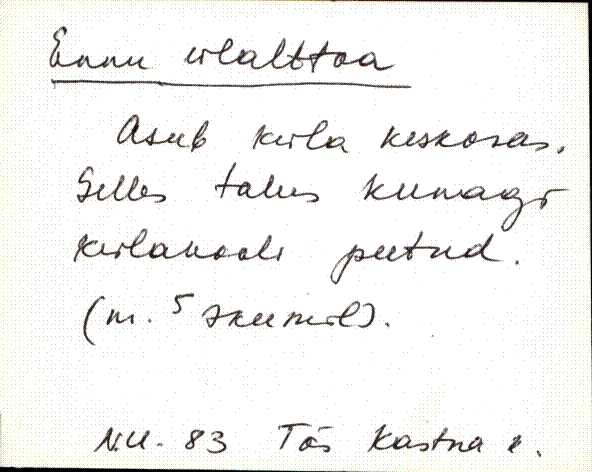 Ennu
Asub küla keskosas.
Selles talus kunagi
külakooli peetud.
(m. 5
N.U. - 83 Tõs Kastna k.